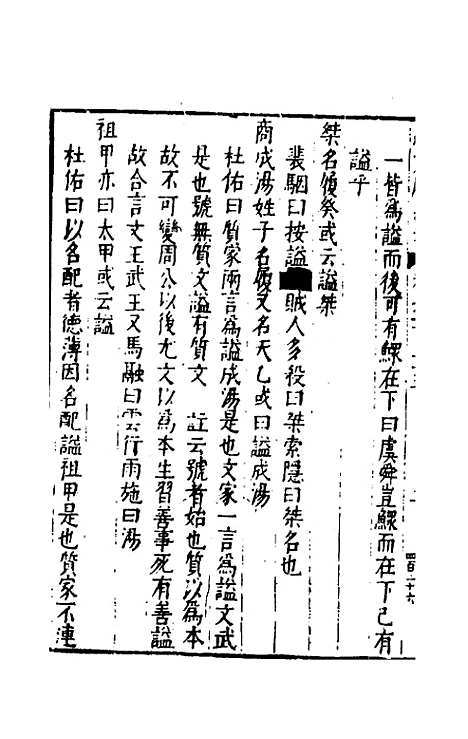 一皆為謚而後可有鰥在下曰虞舜豈鰥而在下已有
謚乎
桀名履癸或云謚桀
裴駰曰按謚賊人多役曰桀索隱曰桀名也
商成湯姓子名履又名天乙或曰謚成湯
杜佑曰質家兩言為謚成湯是也文家一言為謚文武
是也號無質文謚有質文 註云號者始也質以為本
故不可變周公以後尤文以為本生習善事死有善謚
故合言文王武王又馬融曰雲行雨施曰湯
祖甲亦曰太甲或云謚
杜佑曰以名配者德薄因名配謚祖甲是也質家不連
四百二十六